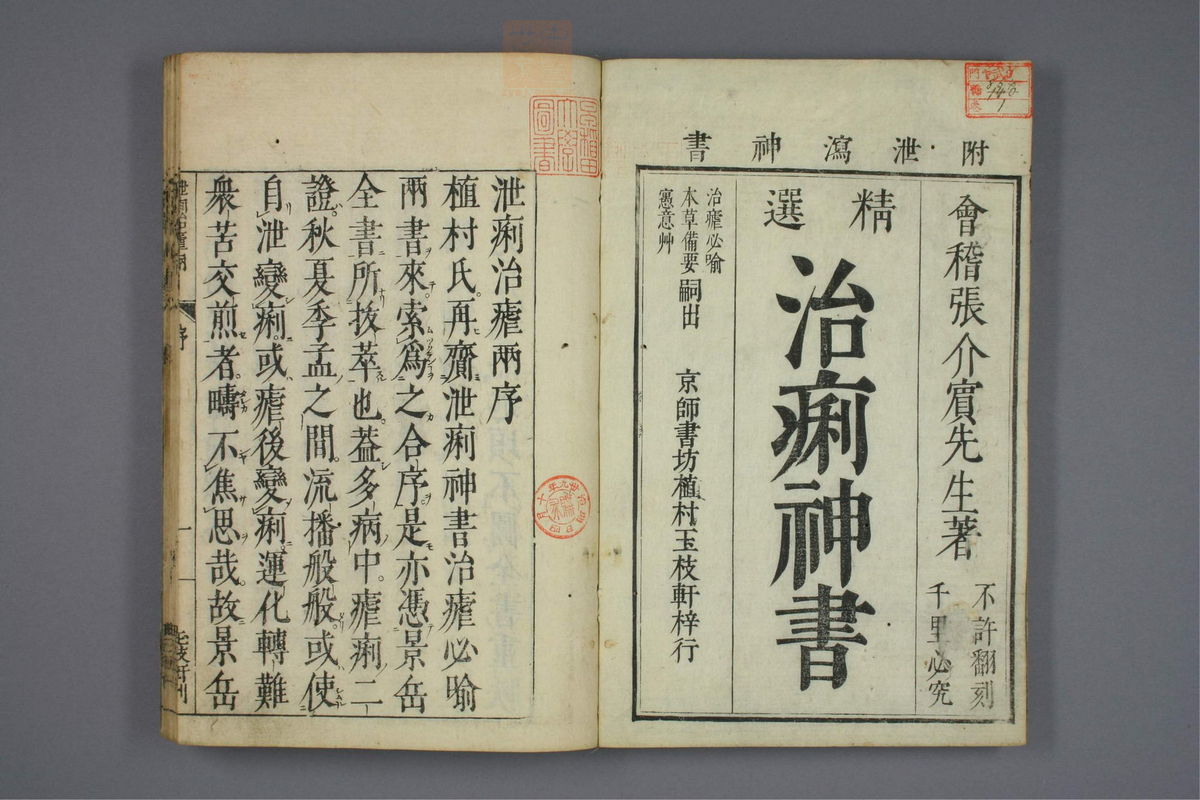 附泄瀉神書
會稽張介賓先生著
不許翻刻
千里必究
精選
治痢神書
治瘧必喻
本草備要
寓意艸
嗣出
京師書坊植村玉枝軒梓行
泄痢治瘧兩序
植村氏再齎泄痢神書治瘧必喻
兩書來索爲之合序是亦憑景岳
全書所拔萃也葢多病中瘧痢二
證秋夏季孟之間流播般般或使
自泄變痢或瘧後變痢運化轉難
衆苦交煎者疇不焦思哉故景岳
序
一
玉枝軒刊